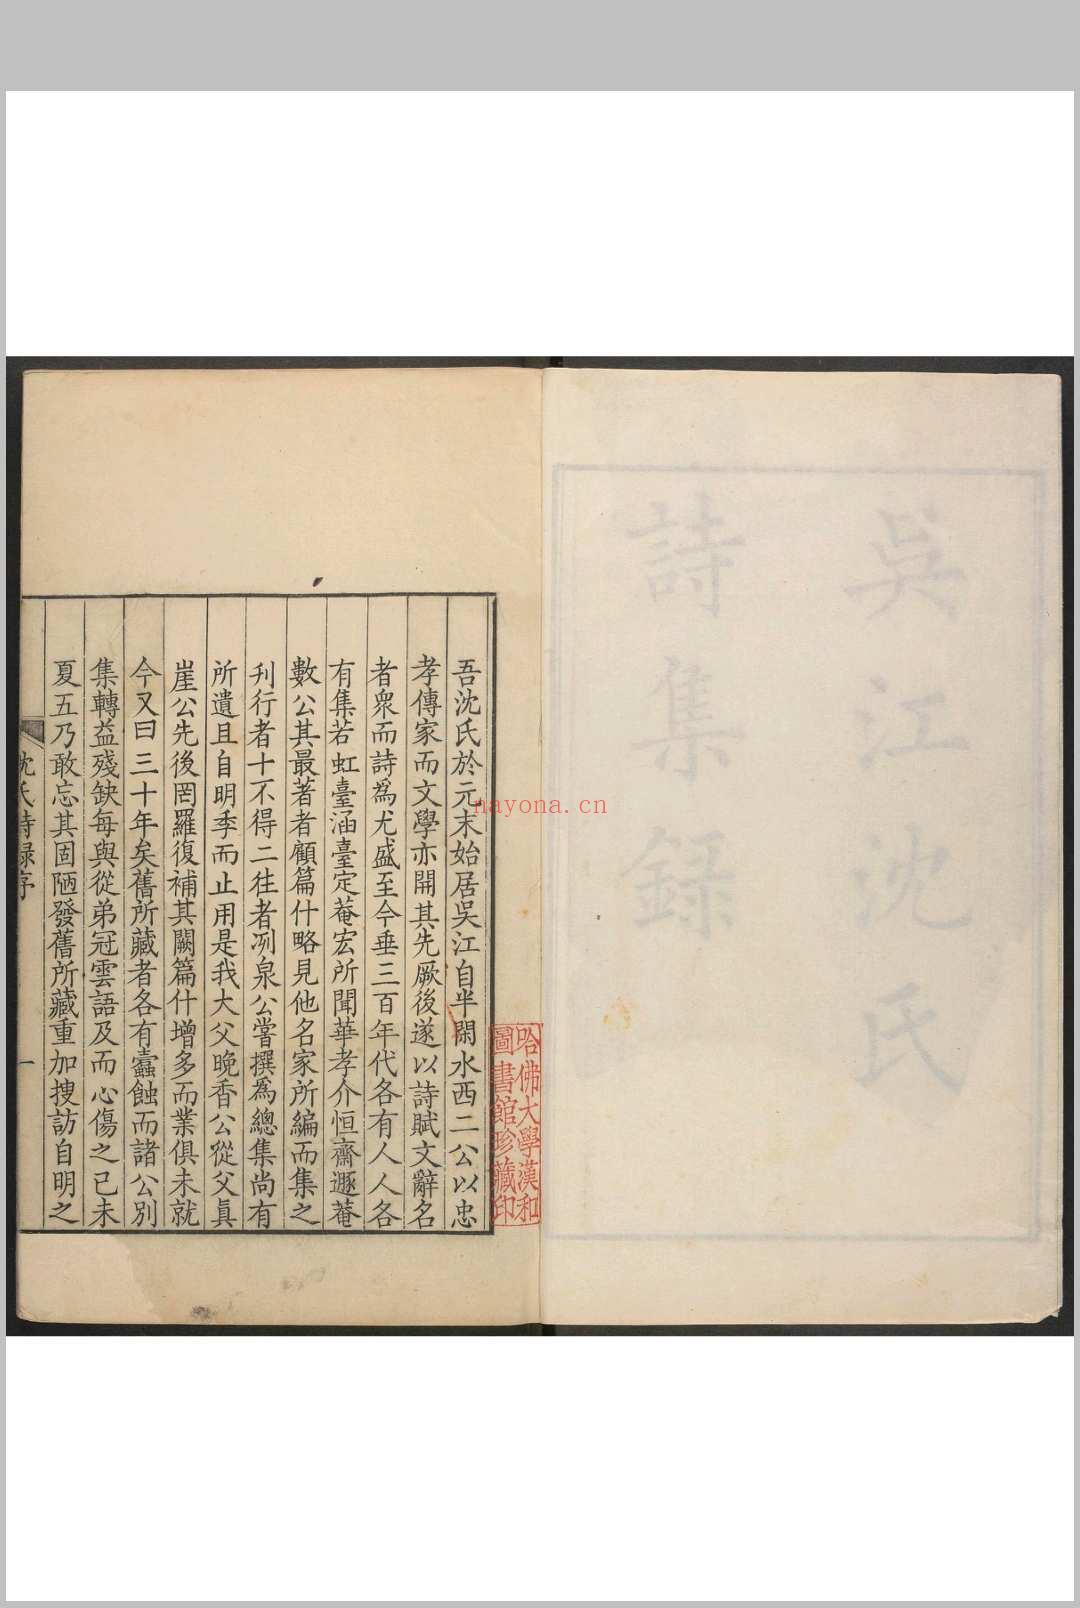 吳江沈氏
詩集録
哈佛大學漢和
圖書館珍藏印
吾沈氏於元末始居吳江自半閒水西二公以忠
孝傳家而文學亦開其先厥後遂以詩賦文辭名
者衆而詩爲尤盛至今垂三百年代各有人人各
有集若虹臺涵臺定菴宏所聞華孝介恒齋遯菴
數公其最著者顧篇什略見他名家所編而集之
刋行者十不得二徃者冽泉公嘗撰爲總集尚有
所遺且自明季而止用是我大父晚香公從父眞
崖公先後罔羅復補其闕篇什增多而業俱未就
今又曰三十年矣舊所藏者各有蠹蝕而諸公別
集轉益殘缺每與從弟冠雲語及而心傷之己未
夏五乃敢忘其固陋發舊所藏重加搜訪自明之
沈氏詩録序
一
nayona.cn